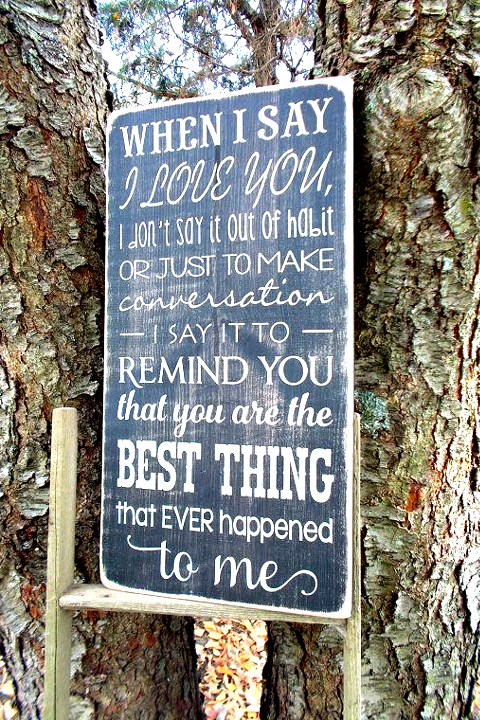 WHEN I SAY
I LOVE YOU,
I don't say it out of habit
OR JUST TO MAKE
conversation
— I SAY IT TO —
REMIND YOU
that you are the
BEST THING
that EVER happened
to me